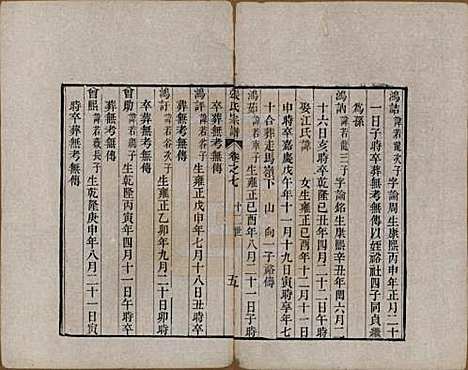 鴻喆諱若龍次子字論周生康熙丙申年正月二十
一日子時卒葬無考無傳以姪裕社四子同貞繼
爲孫
鴻訥諱若龍三子字論銘生康熙辛丑年閏六月二
十六日亥時卒乾隆己丑年十二月十一日寅時
娶江氏諱 女生雍正己酉年十二月
申時卒嘉慶戊午年十一月十九日寅時享年七
十合葬走馬嶺下 山 向一子裕傳
鴻 諱若 子生雍正己酉年八月二十一日子時
卒葬無考無傳
張氏宗譜 卷之七 十二世 五
鴻評諱若谷 子生雍正戊申年七月十八日丑時卒
葬無考無傳
鴻訂諱若谷次子生雍正乙卯年九月二十日卯時
卒葬無考無傳
曾助諱若 子生乾隆丙寅年四月十一日午時卒
葬無考無傳
曾熙諱若 長子生乾隆庚申年八月二十一日寅
時卒葬無考無傳